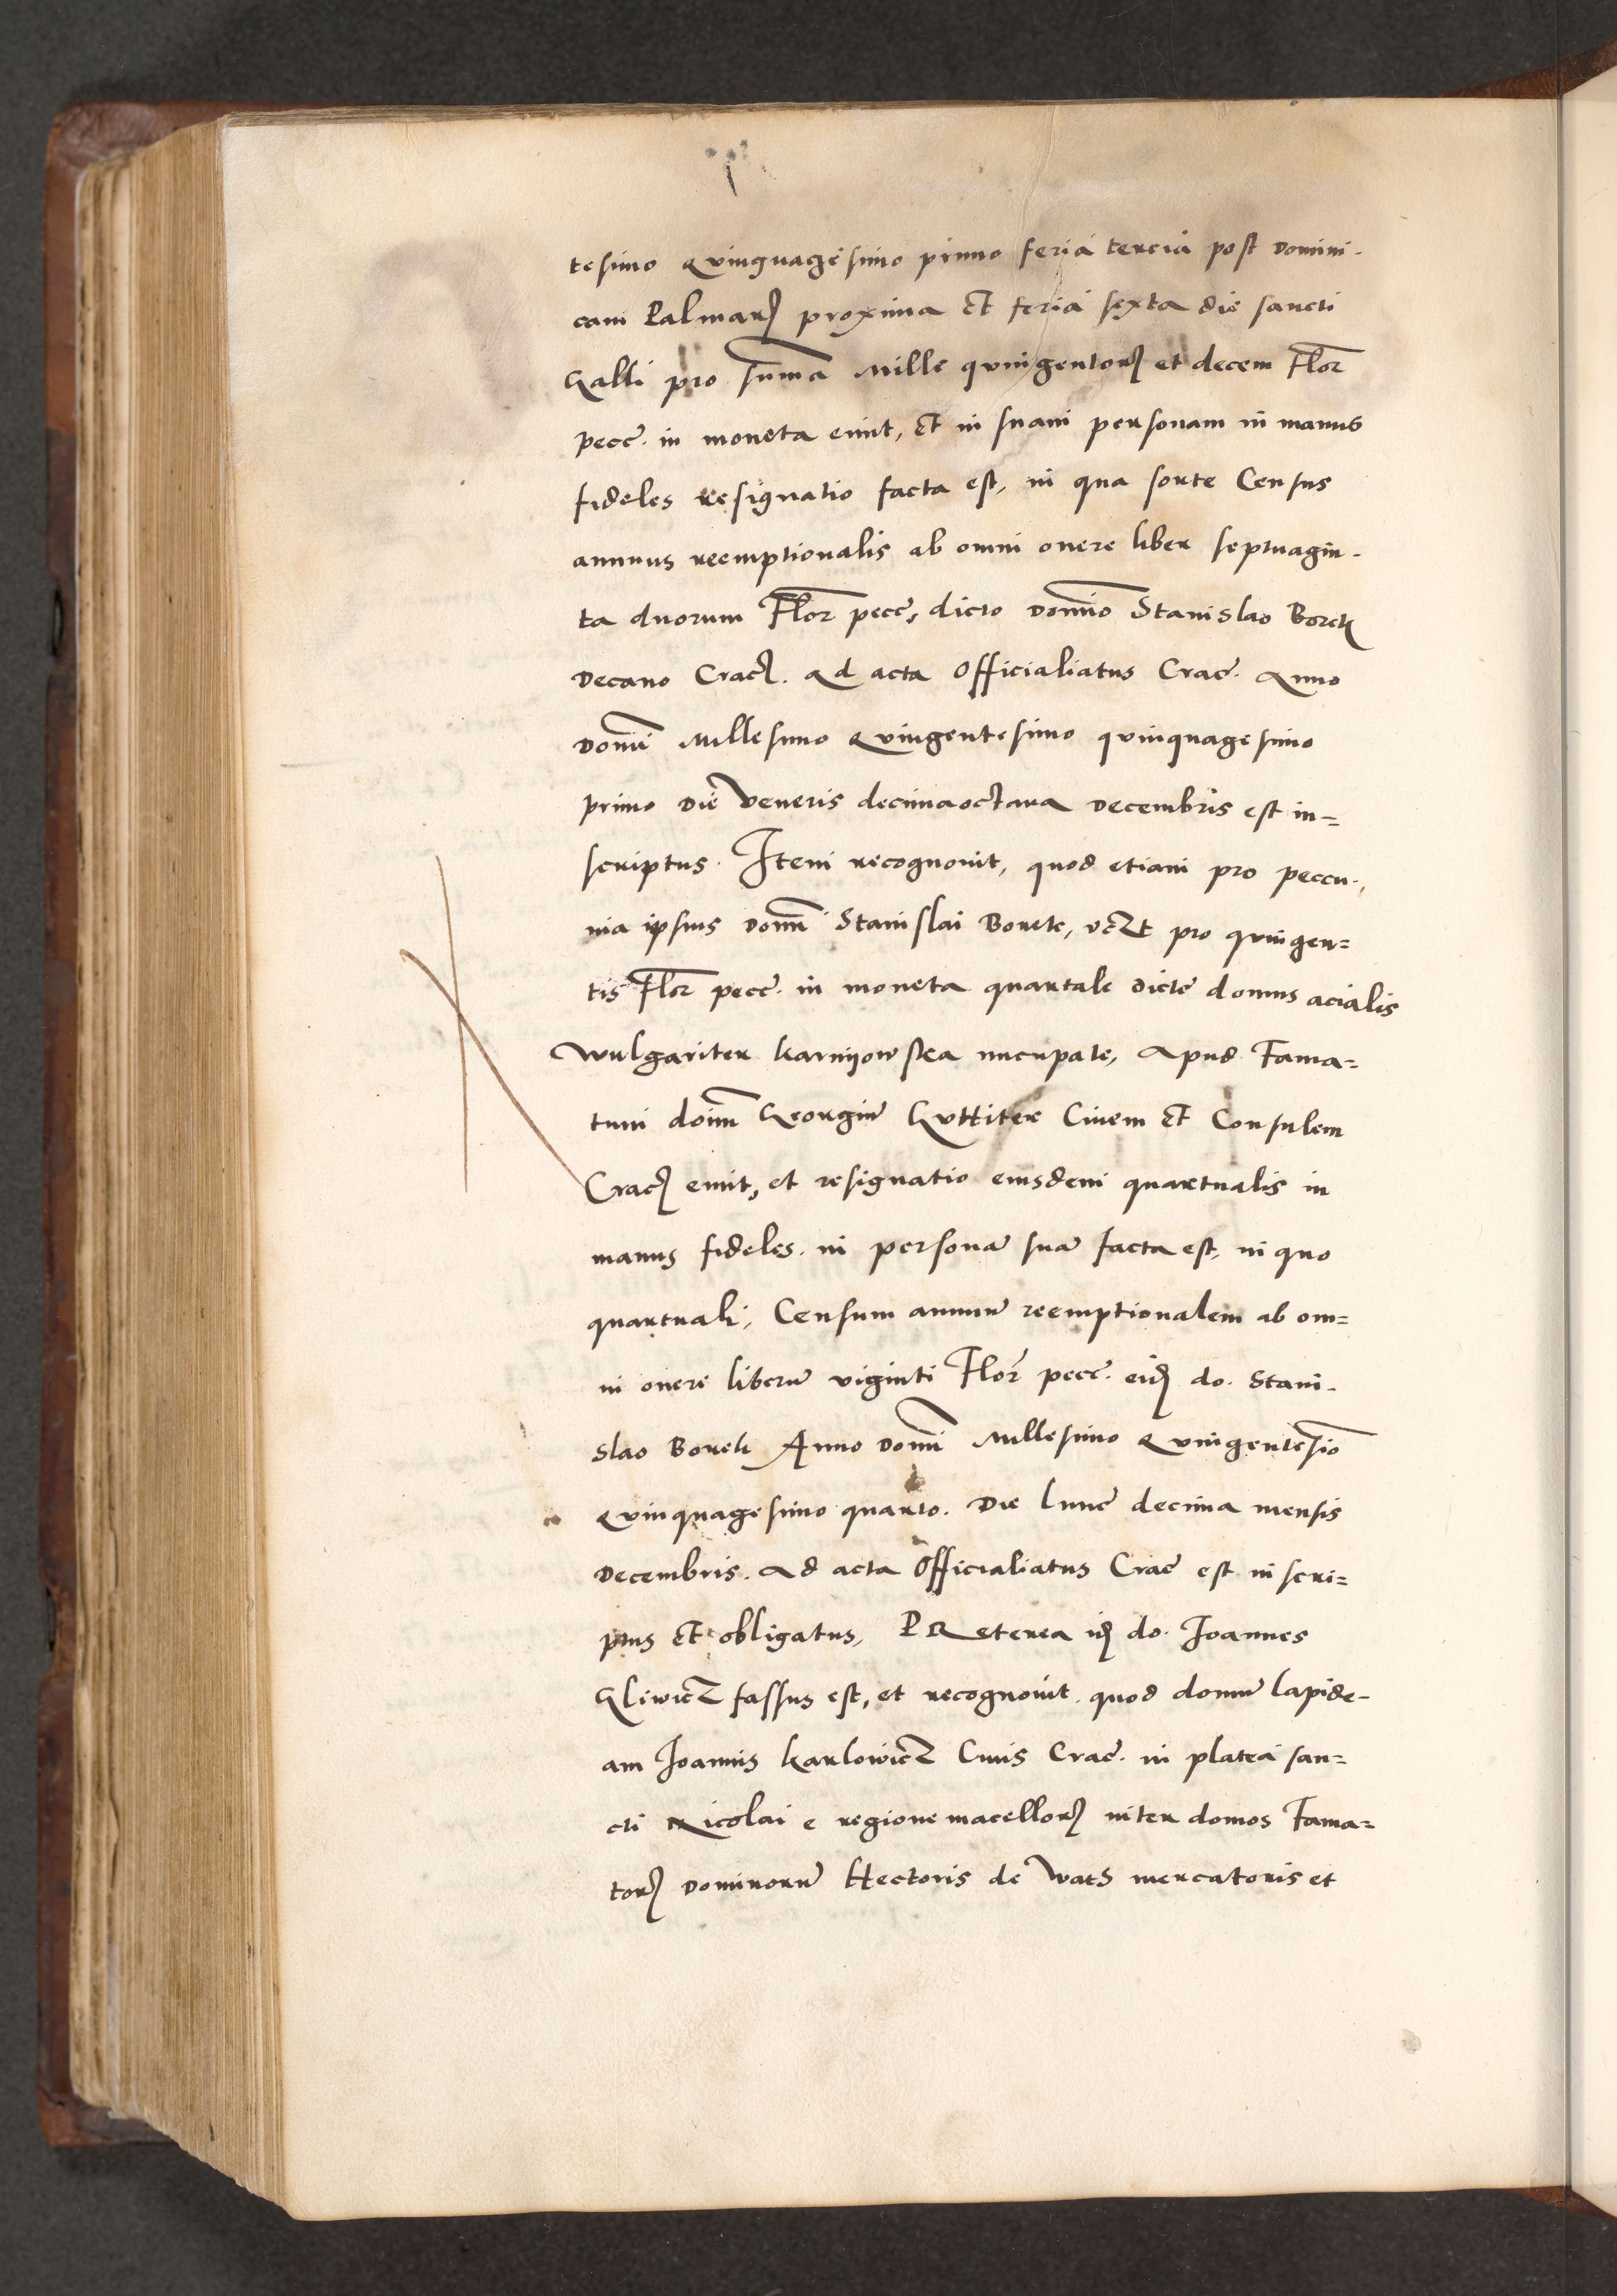 tesimo quinquagesimo primo feria tercia post Domini-
cam Palmarꝝ proxima et feria sexta die sancti
Galli pro summa Mille quingentorꝝ et decem Flor
pecc. in moneta emit, et in suam personam in manus
fideles resignatio facta est, in qua sorte Census
annuus reemptionalis ab omni onere liber septuagin-
ta duorum Flor pecc, dicto Domino Stanislao Borek
Decano Crac. Ad acta Officialiatus Crac. Anno
Domi Millesimo Quingentesimo quinquagesimo
primo Die Veneris decimaoctava Decembris est in=
scriptus. Item recognovit, quod etiam pro peccu-
nia ipsius Domi Stanislai Borek, vczt pro quingen=
tis Flor pecc. in moneta quartale dicte domus acialis
Wulgariter karniiowska nucupate, Apud Fama=
tum doim Georgiū Guttiter Civem et Consulem
Crac emit, et resignatio eiusdem quartualis in
manus fideles in personā suā facta est, in quo
quartuali, Censum annuū reemptionalem ab om=
ni onere liberū viginti Flor pecc. eidꝫ do. Stani-
slao Borek Anno Domi Millesimo Quingentesio
Quinquagesimo quarto. Die Lune decima mensis
Decembris. Ad acta Officialiatus Crac est inscri=
ptus et obligatus, PReterea idꝫ do. Joannes
Gliwicz fassus est, et recognovit quod domū lapide-
am Joannis karlowicz Civis Crac. in platea san=
cti Nicolai e regione macellorꝝ inter domos Fama=
torꝝ Dominorū Hectoris de Wats mercatoris et